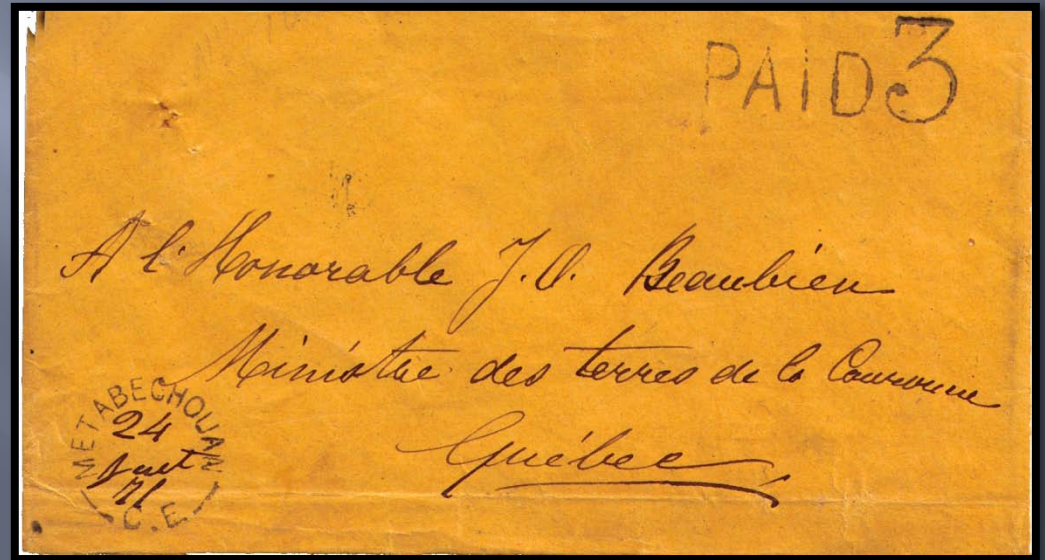 PAID 3
A l'Honorable J.O. Beaubien
Ministre des terres de la Couronne
Québec
METABECHOUAN
24
71
C.E.